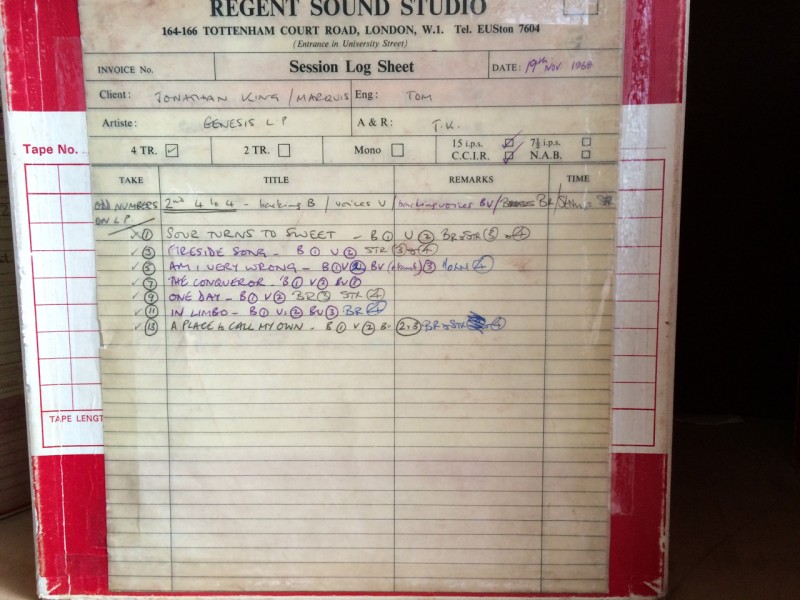 REGENT SOUND STUDIO
164-166 TOTTENHAM COURT ROAD, LONDON, W.1. Tel. EUSton 7604
(Entrance in University Street)
INVOICE No. Session Log Sheet DATE: 19th Nov 1968
Client: JONATHAN KING / MARQUIS Eng: TOM
Artiste: GENESIS L.P A & R: J.K.
4 TR. 2 TR. Mono 15 i.p.s. 7½ i.p.s.
C.C.I.R. N.A.B.
Tape No.
TAKE TITLE REMARKS TIME
ODD NUMBERS 2nd 4 to 4 - backing B / voices V / backing voices BV / BR /
ON L.P.
1 SOUR TURNS TO SWEET - B 1 V 2 BR & STR 3 4
3 FIRESIDE SONG - B 1 V 2 STR 3 4
5 AM I VERY WRONG - B 1 V 2 BV 3 HORN 4
7 THE CONQUEROR - B 1 V 2 BV
9 ONE DAY - B 1 V 2 BR 3 STR 4
11 IN LIMBO - B 1 V 2 BV 3 BR 4
13 A PLACE to CALL MY OWN - B 1 V 2 BV 2,3 BR & STR 4
TAPE LENGT